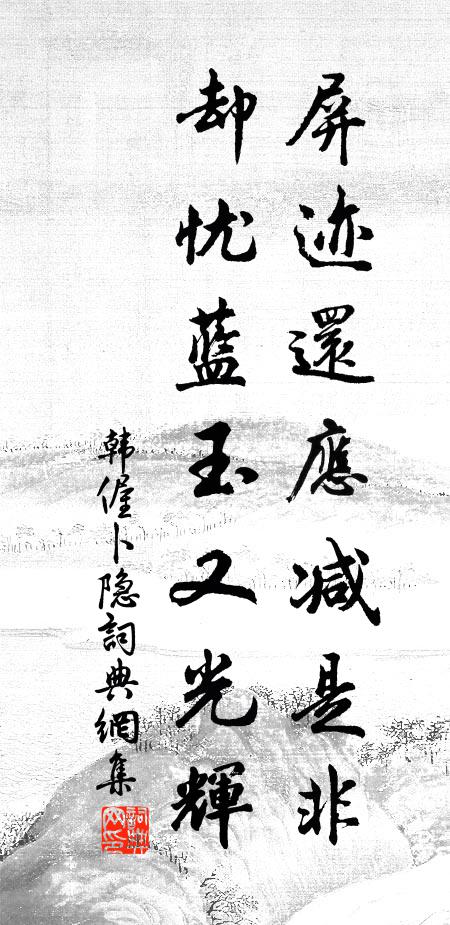 屏迹還應减是非
却忧藍玉又光輝
韩偓卜隐詞典網集